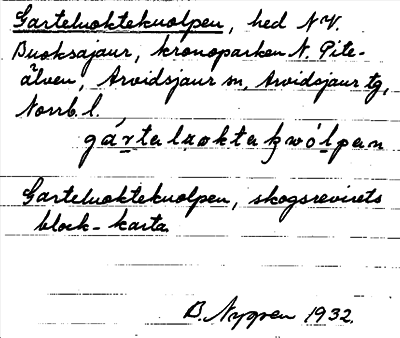 Garteluoktekuolpen, hed N.V.
Buoksajaur, kronoparken N. Pite-
älven, Arvidsjaur sn, Arvidsjaur tg,
Norrb. l.
Garteluoktekuolpen, skogsrevirets
block-karta.
B. Nygren 1932.